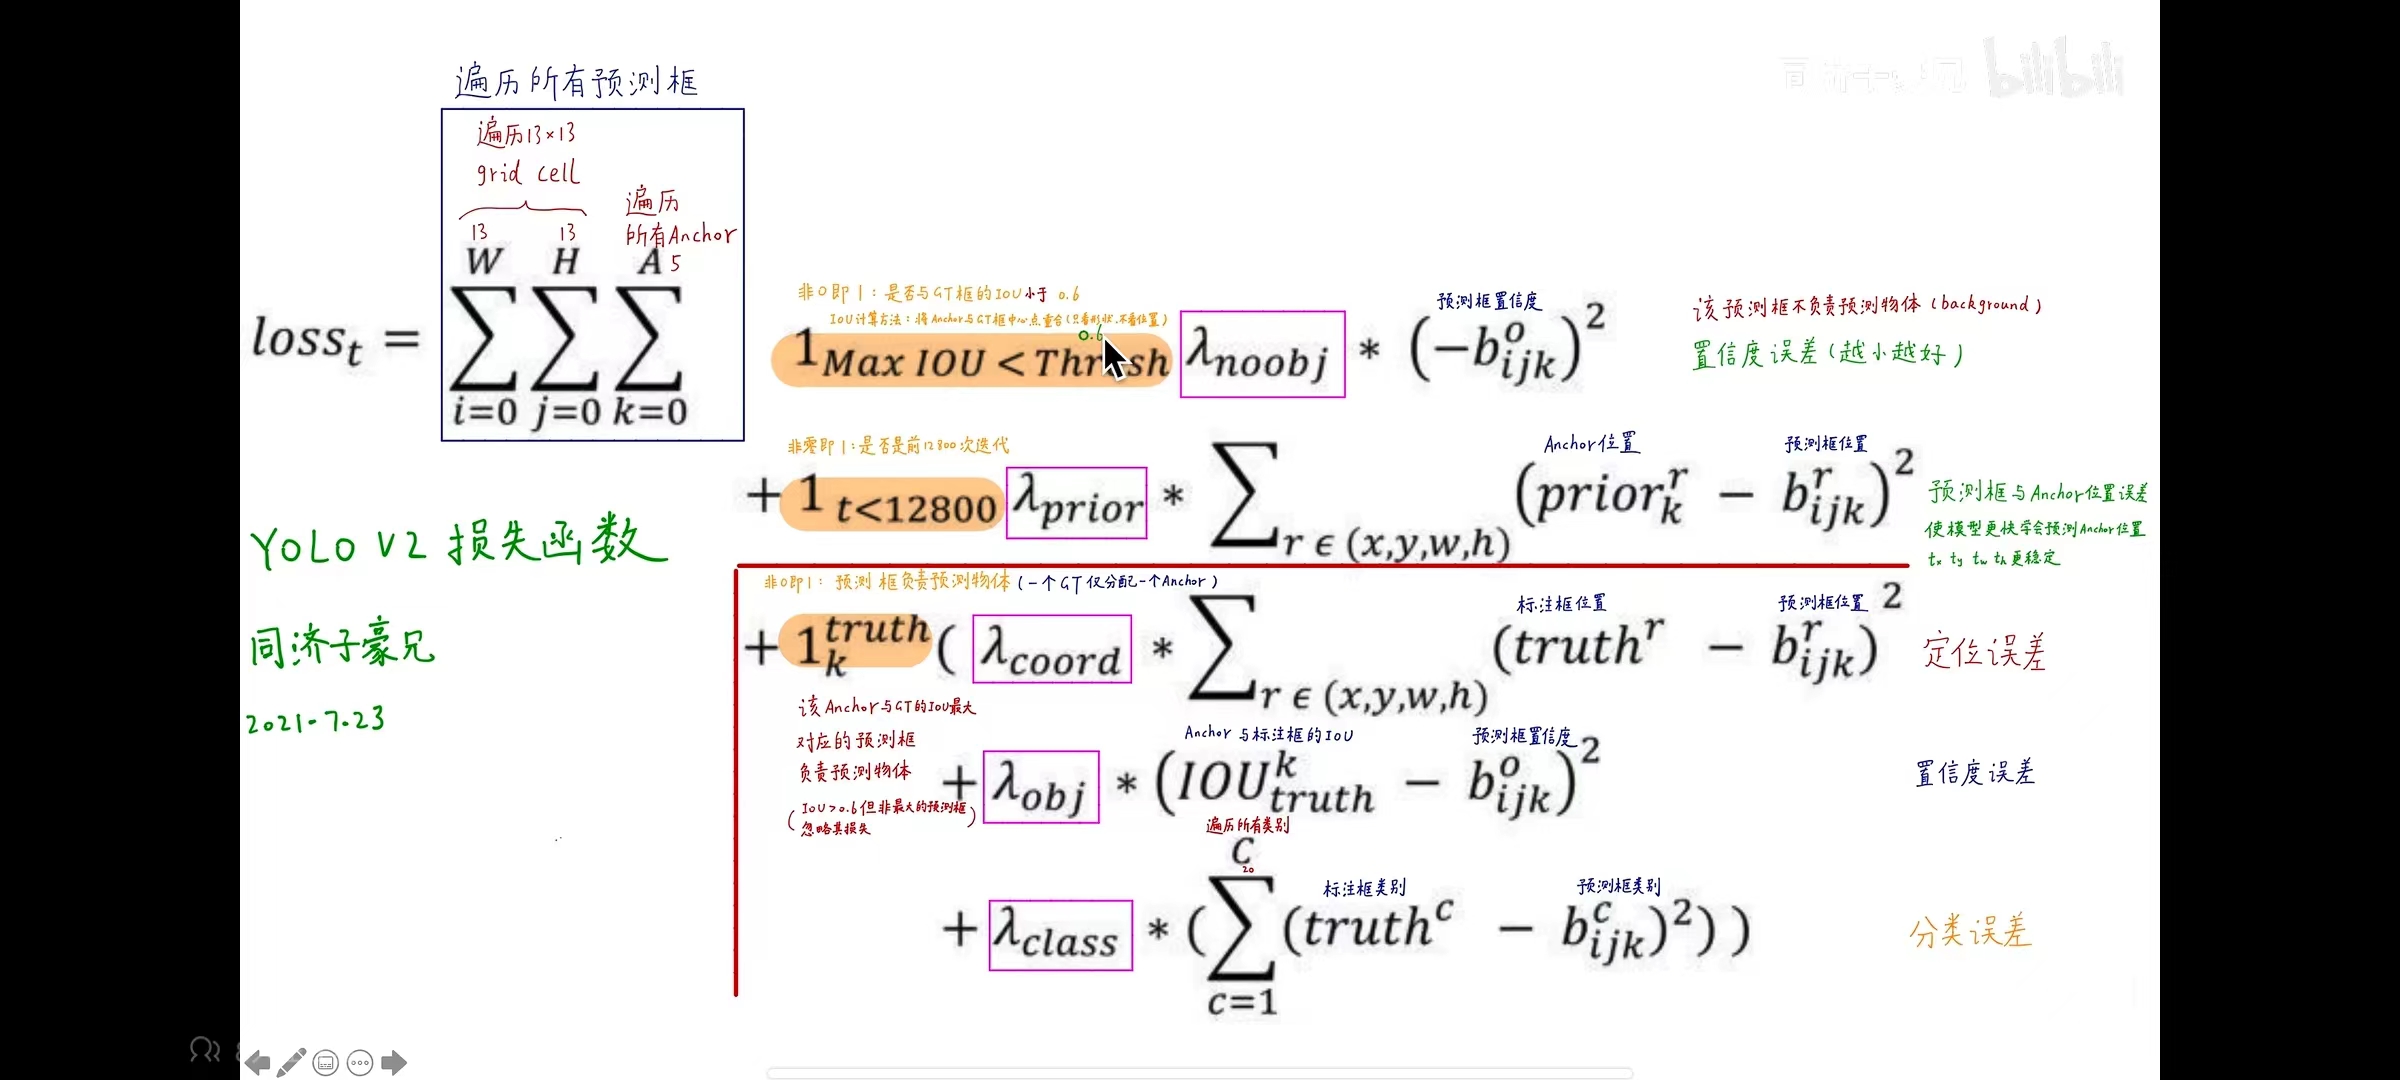 遍历所有预测框
遍历13×13
grid cell
遍历
所有Anchor
13 13
W H A 5
loss_t = ∑ ∑ ∑
i=0 j=0 k=0
非0即1：是否与GT框的IOU小于 0.6
IOU计算方法：将Anchor与GT框中心点重合(只看形状,不看位置)
0.6
预测框置信度
1 Max IOU < Thresh λnoobj * (−b^o_ijk)^2
该预测框不负责预测物体(background)
置信度误差(越小越好)
非零即1:是否是前12800次迭代
Anchor位置 预测框位置
+ 1 t<12800 λprior * ∑ r ϵ (x,y,w,h) (prior^r_k − b^r_ijk)^2
预测框与Anchor位置误差
使模型更快学会预测Anchor位置
tx ty tw th更稳定
YOLO V2 损失函数
同济子豪兄
2021.7.23
非0即1：预测框负责预测物体(一个GT仅分配一个Anchor)
标注框位置 预测框位置
+ 1^truth_k ( λcoord * ∑ r ϵ (x,y,w,h) (truth^r − b^r_ijk)^2
定位误差
该Anchor与GT的IOU最大
对应的预测框
负责预测物体
(IOU>0.6但非最大的预测框
忽略其损失)
Anchor与标注框的IOU 预测框置信度
+ λobj * (IOU^k_truth − b^o_ijk)^2
置信度误差
遍历所有类别
C
20
标注框类别 预测框类别
+ λclass * (∑ (truth^c − b^c_ijk)^2))
c=1
分类误差
bilibili